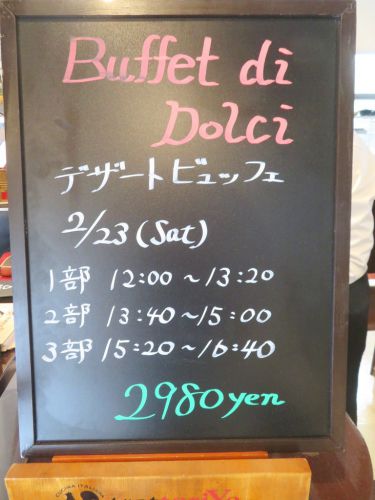 Buffet di
Dolci
デザートビュッフェ
2/23 (Sat)
1部 12:00 ~ 13:20
2部 13:40 ~ 15:00
3部 15:20 ~ 16:40
2980yen
CUCINA ITALIANA